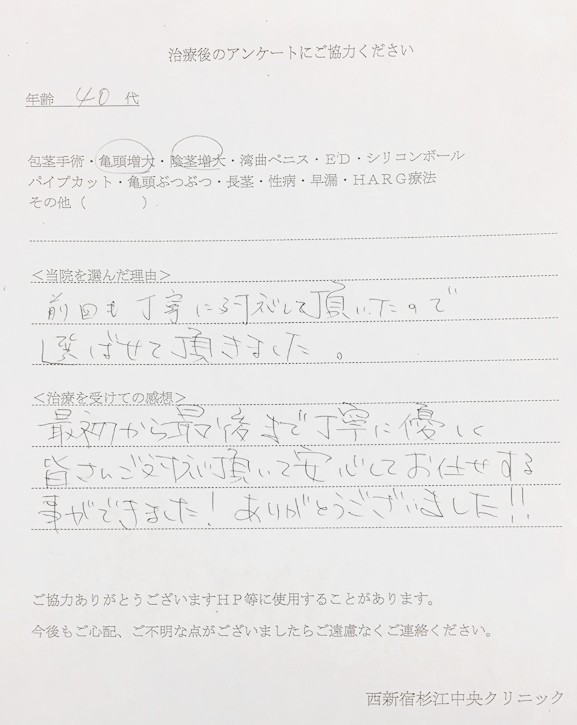 治療後のアンケートにご協力ください
年齢 40 代
包茎手術・亀頭増大・陰茎増大・湾曲ペニス・ED・シリコンボール
パイプカット・亀頭ぶつぶつ・長茎・性病・早漏・HARG療法
その他（　　　）
＜当院を選んだ理由＞
前回も丁寧に対応して頂いたので
選ばせて頂きました。
＜治療を受けての感想＞
最初から最後まで丁寧に優しく
皆さんご対応頂いて安心してお任せする
事ができました！ありがとうございました!!
ご協力ありがとうございますHP等に使用することがあります。
今後もご心配、ご不明な点がございましたらご遠慮なくご連絡ください。
西新宿杉江中央クリニック